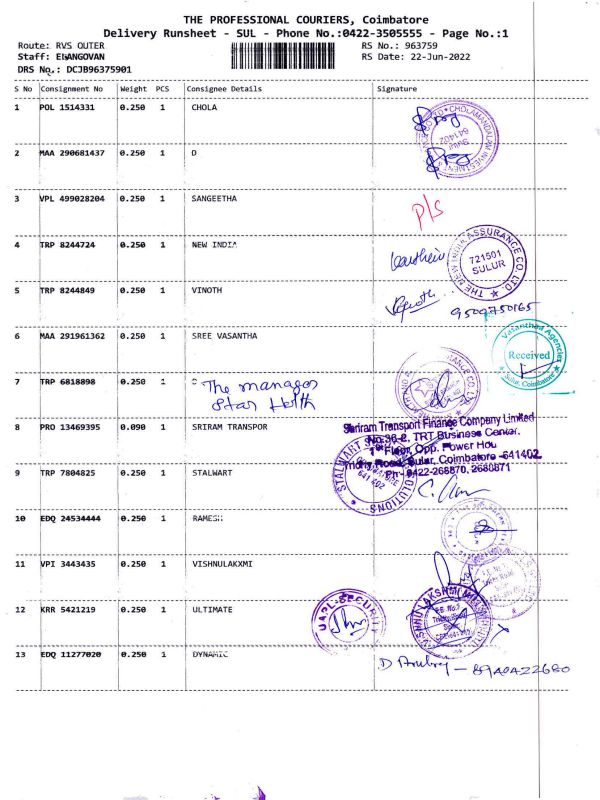 THE PROFESSIONAL COURIERS, Coimbatore
Delivery Runsheet - SUL - Phone No.:0422-3505555 - Page No.:1
Route: RVS OUTER RS No.: 963759
Staff: ELANGOVAN RS Date: 22-Jun-2022
DRS No.: DCJB96375901
S No Consignment No Weight PCS Consignee Details Signature
1 POL 1514331 0.250 1 CHOLA
CHOLAMANDALAM INVESTMENT
Sulur
641402
2 MAA 290681437 0.250 1 D
3 VPL 499028204 0.250 1 SANGEETHA
P/S
4 TRP 8244724 0.250 1 NEW INDIA
THE NEW INDIA ASSURANCE CO. LTD.
721501
SULUR
5 TRP 8244849 0.250 1 VINOTH
9509750165
6 MAA 291961362 0.250 1 SREE VASANTHA
Vasanthaa Agencies
Received
Sulur, Coimbatore
7 TRP 6818898 0.250 1
The manager
Star Helth
8 PRO 13469395 0.090 1 SRIRAM TRANSPOR
Shriram Transport Finance Company Limited
No:36-2, TRT Business Center,
1st Floor, Opp. Power Hou
Trichy Road, Sulur, Coimbatore -641402
Ph - 0422-268870, 2680871
9 TRP 7804825 0.250 1 STALWART
STALWART SOLUTIONS
641 402
10 EDQ 24534444 0.250 1 RAMESH
11 VPI 3443435 0.250 1 VISHNULAKXMI
12 KRR 5421219 0.250 1 ULTIMATE
UAPL-SECURITY
VISHNU LAKSHMI
13 EDQ 11277020 0.250 1 DYNAMIC
8940422680